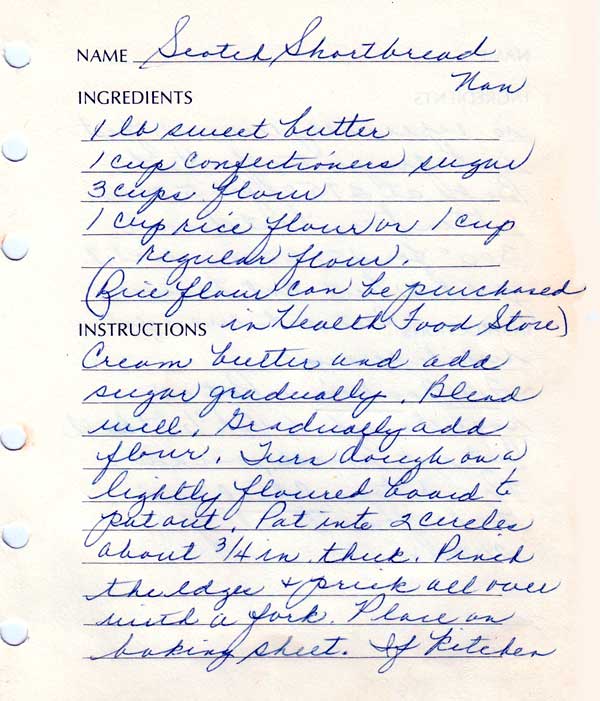 NAME Scotch Shortbread
Nan
INGREDIENTS
1 lb sweet butter
1 cup confectioners sugar
3 cups flour
1 cup rice flour or 1 cup
regular flour.
(Rice flour can be purchased
INSTRUCTIONS in Health Food Store)
Cream butter and add
sugar gradually. Blend
well. Gradually add
flour. Turn dough on a
lightly floured board to
pat out. Pat into 2 circles
about 3/4 in. thick. Pinch
the edges + prick all over
with a fork. Place on
baking sheet. If kitchen